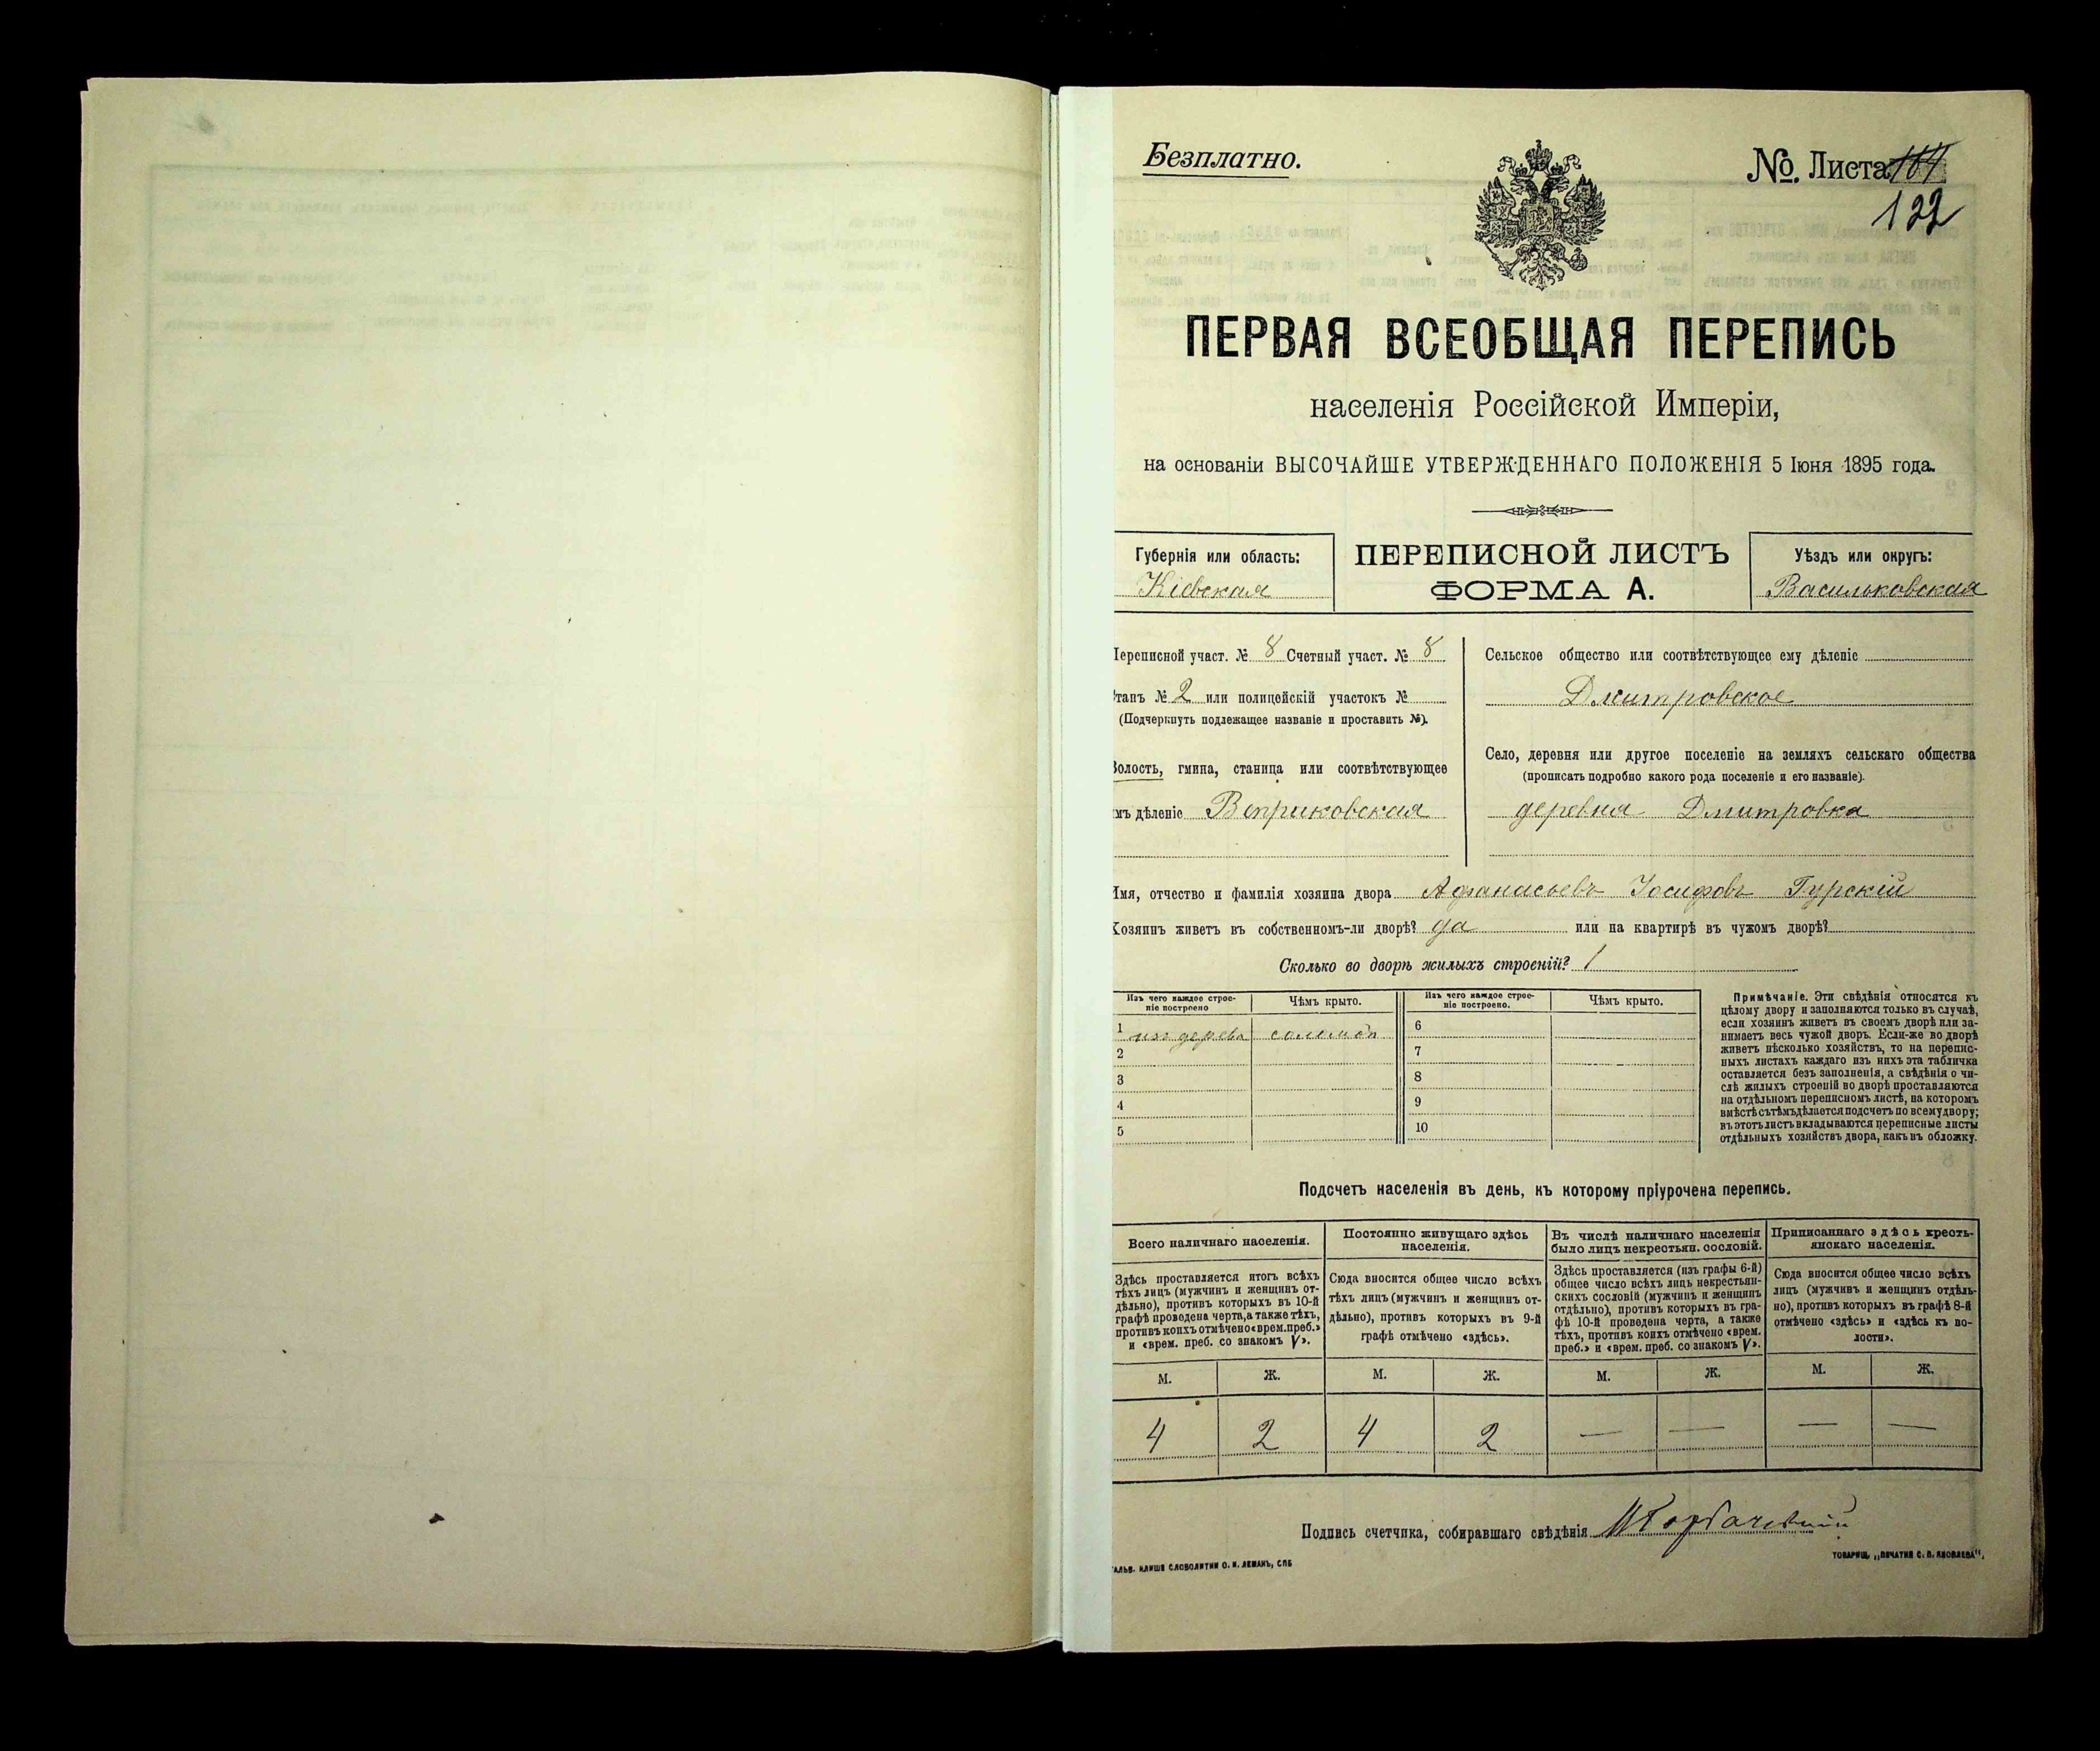 Безплатно.
№. Листа 164
122
ПЕРВАЯ ВСЕОБЩАЯ ПЕРЕПИСЬ
населенія Россійской Имперіи,
на основаніи ВЫСОЧАЙШЕ УТВЕРЖДЕННАГО ПОЛОЖЕНІЯ 5 Іюня 1895 года.
Губернія или область:
Кіевская
ПЕРЕПИСНОЙ ЛИСТЪ
ФОРМА А.
Уѣздъ или округъ:
Васильковская
Переписной участ. № 8 Счетный участ. № 8
Станъ № 2 или полицейскій участокъ №
(Подчеркнуть подлежащее названіе и проставить №).
Волость, гмина, станица или соотвѣтствующее
имъ дѣленіе Веприковская
Сельское общество или соотвѣтствующее ему дѣленіе
Дмитровское
Село, деревня или другое поселеніе на земляхъ сельскаго общества
(прописать подробно какого рода поселеніе и его названіе).
деревня Дмитровка
Имя, отчество и фамилія хозяина двора Афанасьевъ Іосифовъ Гурскій
Хозяинъ живетъ въ собственномъ-ли дворѣ? да или на квартирѣ въ чужомъ дворѣ?
Сколько во дворѣ жилыхъ строеній? 1
Изъ чего каждое строе-
ніе построено
Чѣмъ крыто.
Изъ чего каждое строе-
ніе построено.
Чѣмъ крыто.
1 изъ дерева соломой 6
2 7
3 8
4 9
5 10
Примѣчаніе. Эти свѣдѣнія относятся къ
цѣлому двору и заполняются только въ случаѣ,
если хозяинъ живетъ въ своемъ дворѣ или за-
нимаетъ весь чужой дворъ. Если-же во дворѣ
живетъ нѣсколько хозяйствъ, то на перепис-
ныхъ листахъ каждаго изъ нихъ эта табличка
оставляется безъ заполненія, а свѣдѣнія о чи-
слѣ жилыхъ строеній во дворѣ проставляются
на отдѣльномъ переписномъ листѣ, на которомъ
вмѣстѣ съ тѣмъ дѣлается подсчетъ по всему двору;
въ этотъ листъ вкладываются переписные листы
отдѣльныхъ хозяйствъ двора, какъ въ обложку.
Подсчетъ населенія въ день, къ которому пріурочена перепись.
Всего наличнаго населенія.
Здѣсь проставляется итогъ всѣхъ
тѣхъ лицъ (мужчинъ и женщинъ от-
дѣльно), противъ которыхъ въ 10-й
графѣ проведена черта, а также тѣхъ,
противъ коихъ отмѣчено «врем. преб.»
и «врем. преб. со знакомъ V».
Постоянно живущаго здѣсь
населенія.
Сюда вносится общее число всѣхъ
тѣхъ лицъ (мужчинъ и женщинъ от-
дѣльно), противъ которыхъ въ 9-й
графѣ отмѣчено «здѣсь».
Въ числѣ наличнаго населенія
было лицъ некрестьян. сословій.
Здѣсь проставляется (изъ графы 6-й)
общее число всѣхъ лицъ некрестьян-
скихъ сословій (мужчинъ и женщинъ
отдѣльно), противъ которыхъ въ гра-
фѣ 10-й проведена черта, а также
тѣхъ, противъ коихъ отмѣчено «врем.
преб.» и «врем. преб. со знакомъ V».
Приписаннаго здѣсь кресть-
янскаго населенія.
Сюда вносится общее число всѣхъ
лицъ (мужчинъ и женщинъ отдѣль-
но), противъ которыхъ въ графѣ 8-й
отмѣчено «здѣсь» и «здѣсь къ во-
лости».
М. Ж. М. Ж. М. Ж. М. Ж.
4 2 4 2 — — — —
Подпись счетчика, собиравшаго свѣдѣнія
ГАЛЬВ. КЛИШЕ СЛОВОЛИТНИ О. И. ЛЕМАНЪ, СПБ
ТОВАРИЩ. „ПЕЧАТНЯ С. П. ЯКОВЛЕВА".